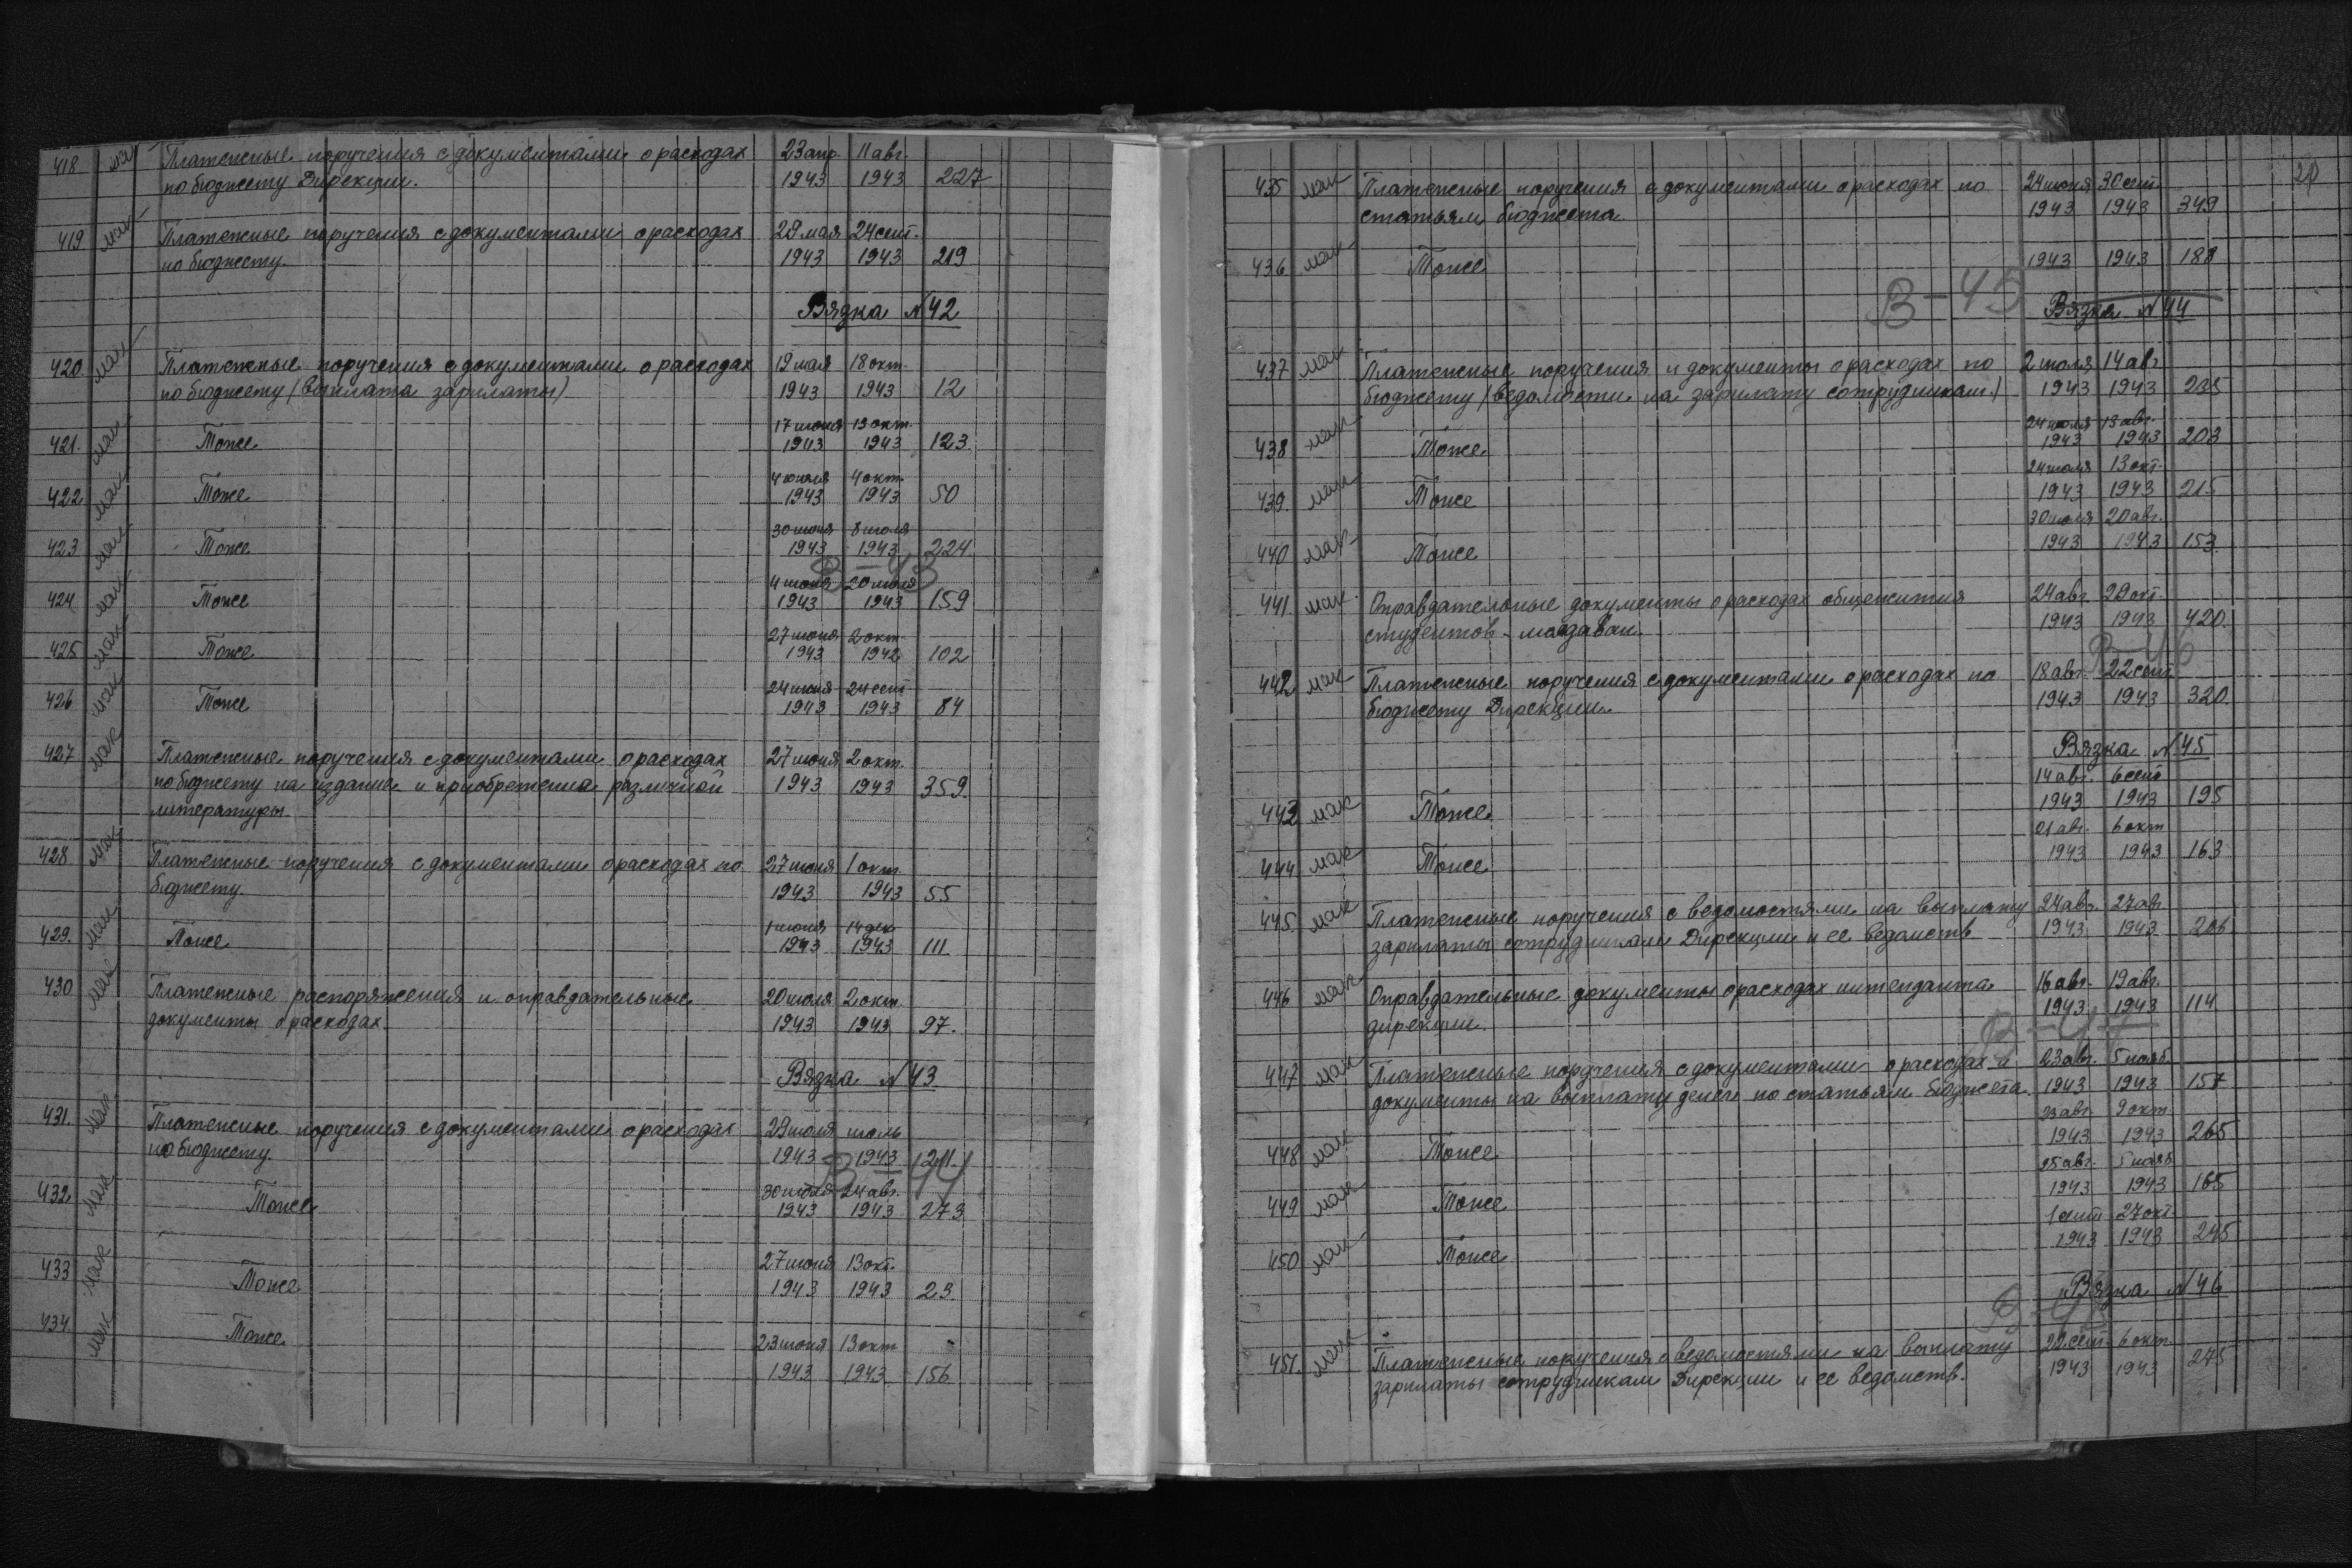 418 мак Платежные поручения с документами о расходах 23 апр. 11 авг.
по бюджету Дирекции. 1943 1943 227
419 мак Платежные поручения с документами о расходах 28 мая 24 сент.
по бюджету. 1943 1943 219
Вязка N 42
420 мак Платежные поручения с документами о расходах 19 мая 18 окт.
по бюджету (выплата зарплаты) 1943 1943 12
17 июня 13 окт.
421. мак Тоже 1943 1943 123
4 июня 4 окт.
422 мак Тоже 1943 1943 50
30 июня 8 июля
423 мак Тоже 1943 1943 224
В-43
4 июня 20 июля
424 мак Тоже 1943 1943 159
27 июня 2 окт.
425 мак Тоже 1943 1942 102
24 июня 24 сент
426 мак Тоже 1943 1943 84
427 мак Платежные поручения с документами о расходах 27 июня 2 окт.
по бюджету на издание и приобретение различной 1943 1943 359.
литературы.
428 мак Платежные поручения с документами о расходах по 27 июня 1 окт
бюджету. 1943 1943 55
1 июня 14 дек
429. мак Тоже 1943 1943 111.
430 мак Платежные распоряжения и оправдательные 20 июля 2 окт.
документы о расходах. 1943 1943 97.
Вязка N 43
431. мак Платежные поручения с документами о расходах 29 июля июль
по бюджету. 1943 1943 1211.
В 44
30 июля 24 авг.
432 мак Тоже 1943 1943 273
27 июня 13 окт.
433 мак Тоже 1943 1943 23.
434 мак Тоже 23 июня 13 окт
1943 1943 156
20
435 мак Платежные поручения с документами о расходах по 24 июня 30 сент
статьям бюджета 1943 1943 349
436 мак Тоже 1943 1943 188
В-45 Вязка N 44
437 мак Платежные поручения и документы о расходах по 2 июля 14 авг
бюджету (ведомости на зарплату сотрудникам) 1943 1943 235
24 июля 19 авг.
438 мак Тоже 1943 1943 203
24 июля 13 окт.
439. мак Тоже 1943 1943 215
30 июля 20 авг.
440 мак Тоже 1943 1943 153
441. мак Оправдательные документы о расходах общежития 24 авг 29 окт.
студентов-молдаван. 1943 1943 420.
В-46
442 мак Платежные поручения с документами о расходах по 18 авг. 22 сент.
бюджету Дирекции. 1943 1943 320.
Вязка N 45
14 авг. 6 сент
443 мак Тоже 1943 1943 195
21 авг. 6 окт
444 мак Тоже 1943 1943 163
445. мак Платежные поручения с ведомостями на выплату 24 авг. 27 авг
зарплаты сотрудникам Дирекции и ее ведомств 1943 1943 206
446 мак Оправдательные документы о расходах интенданта 16 авг. 19 авг.
дирекции. 1943 1943 114
В-47
447 мак Платежные поручения с документами о расходах и 23 авг. 5 нояб.
документы на выплату денег по статьям бюджета. 1943 1943 157
23 авг. 9 окт.
448 мак Тоже 1943 1943 265
25 авг. 5 нояб
449 мак Тоже 1943 1943 165
1 сент 27 окт.
450 мак Тоже 1943 1943 245
Вязка N 46
451. мак Платежные поручения с ведомостями на выплату 22 сент. 6 окт.
зарплаты сотрудникам Дирекции и ее ведомств. 1943 1943 275